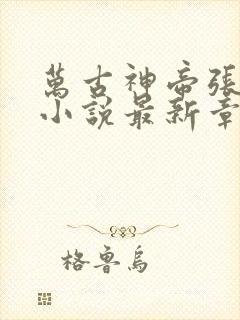 萬古神帝張
小說最新章
格魯烏